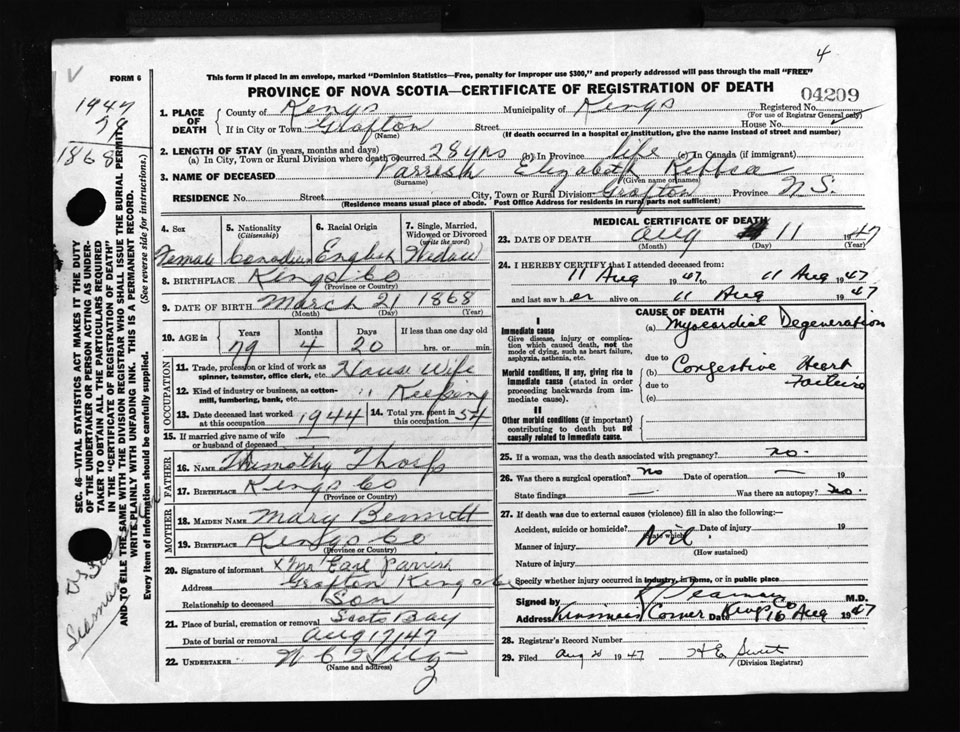 4
V
FORM 6
This form if placed in an envelope, marked "Dominion Statistics—Free, penalty for improper use $300," and properly addressed will pass through the mail "FREE"
PROVINCE OF NOVA SCOTIA—CERTIFICATE OF REGISTRATION OF DEATH
04209
1947
79
1868
1. PLACE OF DEATH
County of Kings Municipality of Kings Registered No.
(For use of Registrar General only)
If in City or Town Grafton Street House No.
(Name) (If death occurred in a hospital or institution, give the name instead of street and number)
2. LENGTH OF STAY (in years, months and days)
(a) In City, Town or Rural Division where death occurred 28 yrs (b) In Province life (c) In Canada (if immigrant)
3. NAME OF DECEASED Parrish Elizabeth Rebbca
(Surname) (Given name or names)
RESIDENCE No. Street City, Town or Rural Division Grafton Province N.S.
(Residence means usual place of abode. Post Office Address for residents in rural parts not sufficient)
4. Sex 5. Nationality (Citizenship) 6. Racial Origin 7. Single, Married, Widowed or Divorced (write the word)
Female Canadian English Widow
8. BIRTHPLACE Kings Co
(Province or Country)
9. DATE OF BIRTH March 21 1868
(Month) (Day) (Year)
10. AGE in Years Months Days If less than one day old
79 4 20 hrs. or min.
OCCUPATION
11. Trade, profession or kind of work as spinner, teamster, office clerk, etc. House Wife
12. Kind of industry or business, as cotton-mill, lumbering, bank, etc. " Keeping
13. Date deceased last worked at this occupation 1944 14. Total yrs. spent in this occupation 54
15. If married give name of wife or husband of deceased
FATHER
16. NAME Thimothy Thorp
17. BIRTHPLACE Kings Co
(Province or Country)
MOTHER
18. MAIDEN NAME Mary Bennett
19. BIRTHPLACE Kings Co
(Province or Country)
20. Signature of informant x Mr Earl Parrish
Address Grafton Kings Co
Relationship to deceased Son
21. Place of burial, cremation or removal Scots Bay
Date of burial or removal Aug 17/47
22. UNDERTAKER
(Name and address)
MEDICAL CERTIFICATE OF DEATH
23. DATE OF DEATH Aug 11 1947
(Month) (Day) (Year)
24. I HEREBY CERTIFY that I attended deceased from:
11 Aug 1947 to 11 Aug 1947
and last saw her alive on 11 Aug 1947
CAUSE OF DEATH
I
Immediate cause
Give disease, injury or complication which caused death, not the mode of dying, such as heart failure, asphyxia, asthenia, etc.
(a) Myocardial Degeneration
due to
Morbid conditions, if any, giving rise to immediate cause (stated in order proceeding backwards from immediate cause).
(b) Congestive Heart Faileiro
due to
(c)
II
Other morbid conditions (if important) contributing to death but not causally related to immediate cause.
25. If a woman, was the death associated with pregnancy? no.
26. Was there a surgical operation? no Date of operation — 19
State findings — Was there an autopsy? no.
27. If death was due to external causes (violence) fill in also the following:—
Accident, suicide or homicide? Date of injury 19
(State which)
Nil
Manner of injury
(How sustained)
Nature of injury
Specify whether injury occurred in industry, in home, or in public place
Signed by M.D.
Kinsmans Corner Kings Co Date 16 Aug 1947
28. Registrar's Record Number
29. Filed Aug 20 1947 H E Swift
(Division Registrar)
SEC. 46—VITAL STATISTICS ACT MAKES IT THE DUTY
OF THE UNDERTAKER OR PERSON ACTING AS UNDER-
TAKER TO OBTAIN ALL THE PARTICULARS REQUIRED
IN THE "CERTIFICATE OF REGISTRATION OF DEATH"
AND TO FILE THE SAME WITH THE DIVISION REGISTRAR WHO SHALL ISSUE THE BURIAL PERMIT
WRITE PLAINLY WITH UNFADING INK. THIS IS A PERMANENT RECORD.
Every item of information should be carefully supplied. (See reverse side for instructions.)